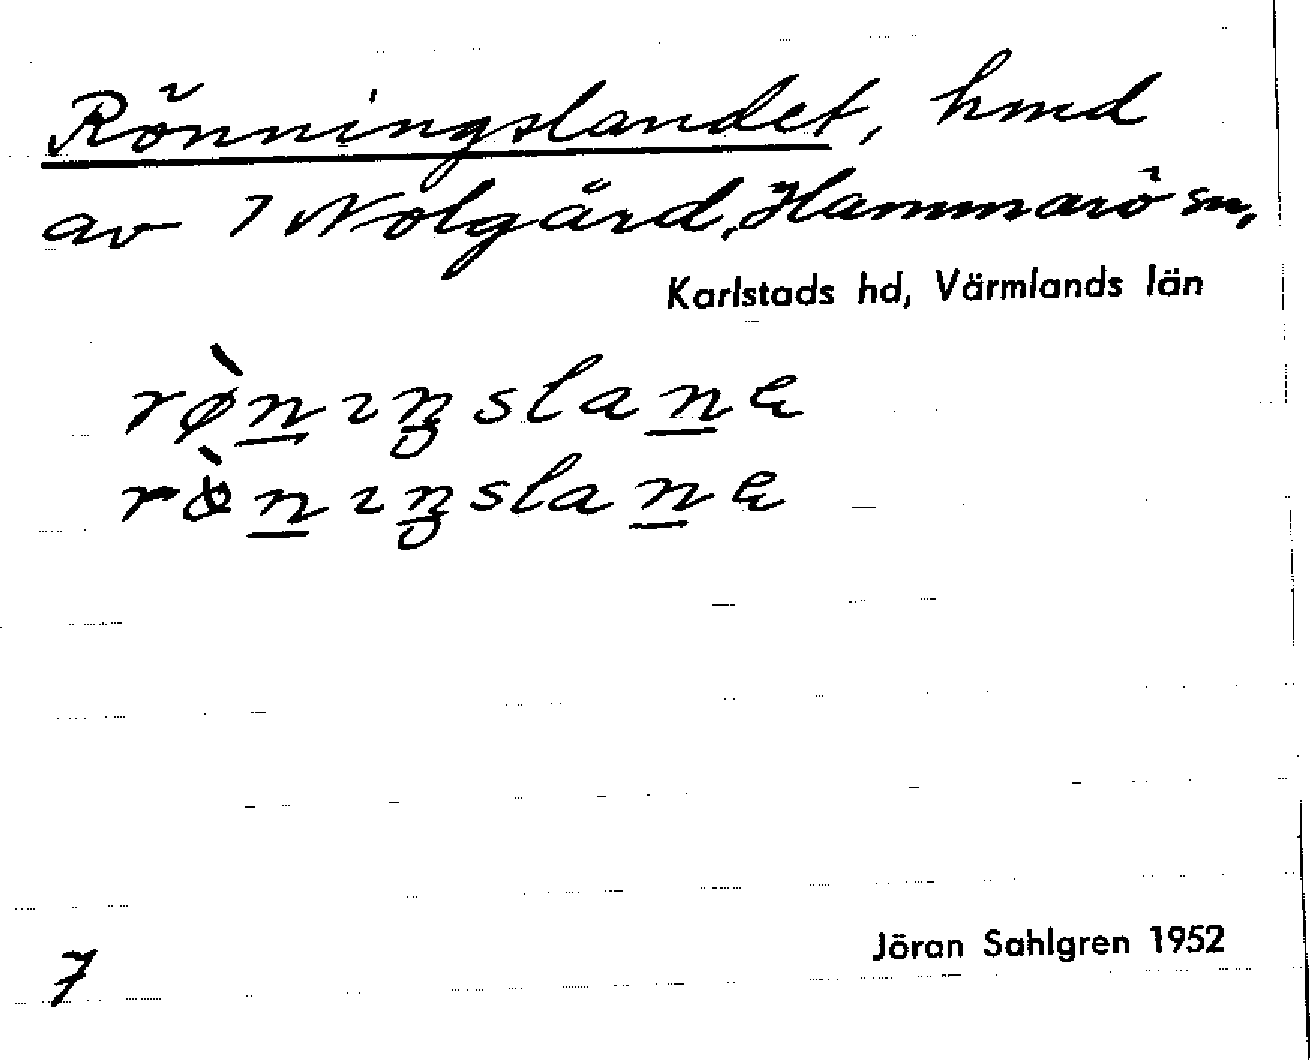 Rönningslandet, hmd
av 7 Nolgård, Hammarö sn,
Karlstads hd, Värmlands län
rø̀n̲ıŋslan̲ə
rö̀n̲ıŋslan̲ə
7
Jöran Sahlgren 1952